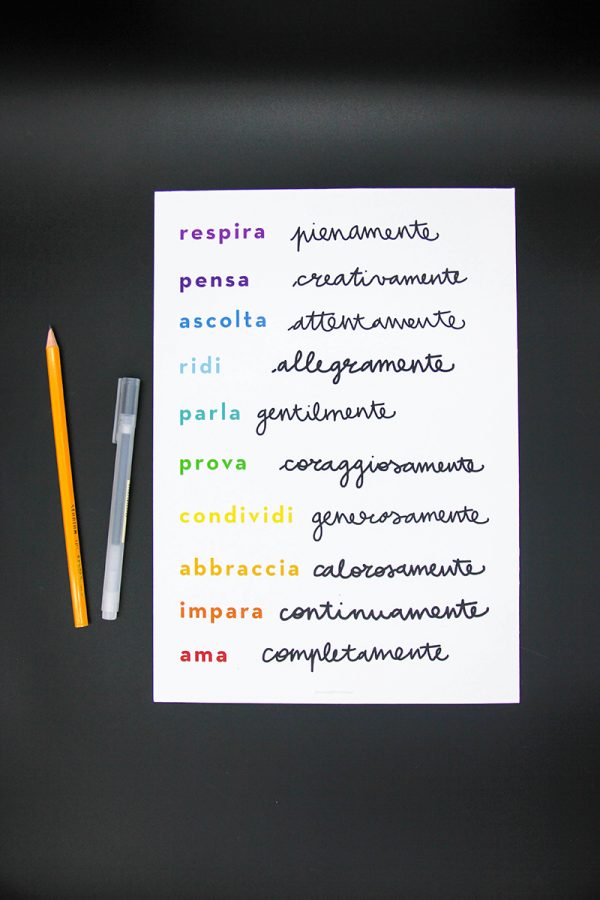 respira pienamente
pensa creativamente
ascolta attentamente
ridi allegramente
parla gentilmente
prova coraggiosamente
condividi generosamente
abbraccia calorosamente
impara continuamente
ama completamente